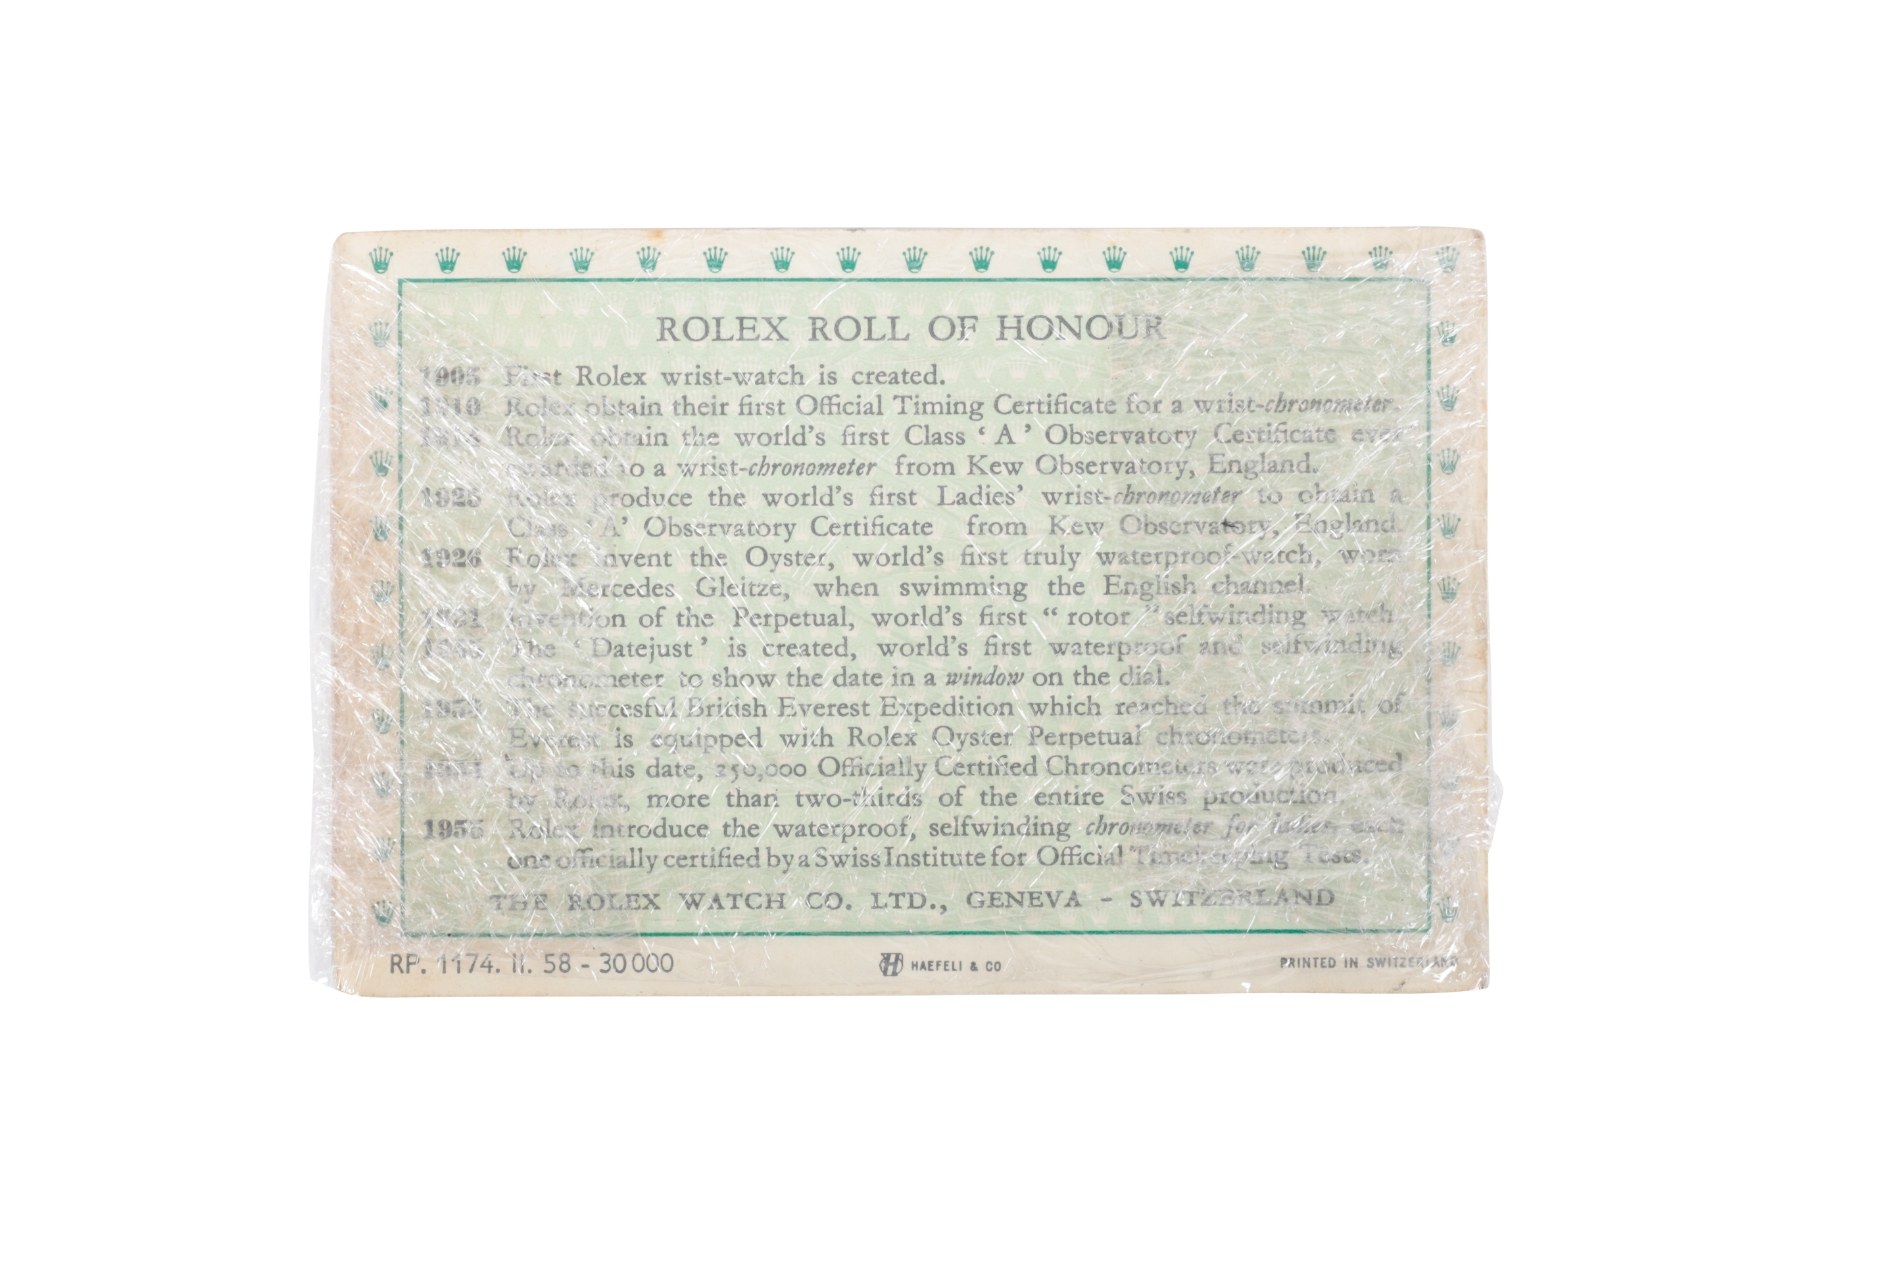 ROLEX ROLL OF HONOUR
1905 First Rolex wrist-watch is created.
1910 Rolex obtain their first Official Timing Certificate for a wrist-chronometer.
Rolex obtain the world's first Class ‘ A ’ Observatory Certificate ever
awarded to a wrist-chronometer from Kew Observatory, England.
1925 Rolex produce the world's first Ladies’ wrist-chronometer to obtain a
Class ‘ A’ Observatory Certificate from Kew Observatory, England.
1926 Rolex invent the Oyster, world's first truly waterproof-watch, worn
by Mercedes Gleitze, when swimming the English channel.
1931 Invention of the Perpetual, world's first “ rotor ” selfwinding watch.
The ‘ Datejust ’ is created, world's first waterproof and selfwinding
chronometer to show the date in a window on the dial.
1953 The succesful British Everest Expedition which reached the summit of
Everest is equipped with Rolex Oyster Perpetual chronometers.
Up to this date, 250,000 Officially Certified Chronometers were produced
by Rolex, more than two-thirds of the entire Swiss production.
1955 Rolex introduce the waterproof, selfwinding chronometer for ladies, each
one officially certified by a Swiss Institute for Official Timekeeping Tests.
THE ROLEX WATCH CO. LTD., GENEVA - SWITZERLAND
RP. 1174. II. 58 - 30 000
HAEFELI & CO
PRINTED IN SWITZERLAND